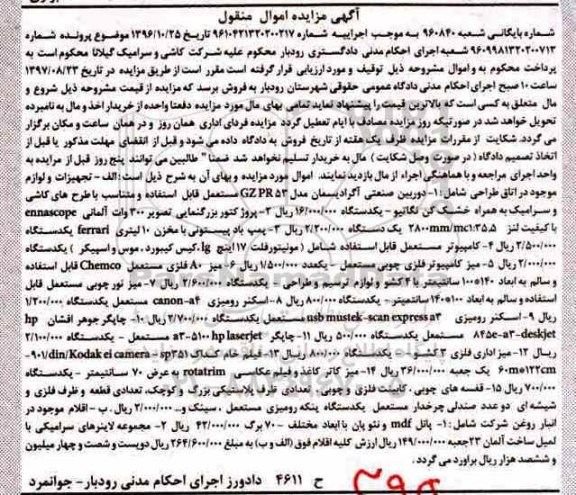 آگهی مزایده اموال منقول
شماره بایگانی شعبه ۹۶۰۸۴۰ به موجب اجراییه شماره ۹۶۱۰۴۲۱۳۲۰۲۰۰۲۱۷ تاریخ ۱۳۹۶/۱۰/۲۵ موضوع پرونده شماره
۹۶۰۹۹۸۱۳۲۰۲۰۰۷۱۳ شعبه اجرای احکام مدنی دادگستری رودبار محکوم علیه شرکت کاشی و سرامیک گیلانا محکوم است به
پرداخت محکوم به و اموال مشروحه ذیل توقیف و مورد ارزیابی قرار گرفته است مقرر است از طریق مزایده در تاریخ ۱۳۹۷/۰۸/۲۳
ساعت ۱۰ صبح اجرای احکام مدنی دادگاه عمومی حقوقی شهرستان رودبار به فروش برسد که مزایده از قیمت مشروحه ذیل شروع و
مال متعلق به کسی است که بالاترین قیمت را پیشنهاد نماید تمامی بهای مال مورد مزایده دفعتا واحده از خریدار اخذ و مال به نامبرده
تحویل خواهد شد در صورتیکه روز مزایده مصادف با ایام تعطیل گردد مزایده فردای اداری همان روز و در همان ساعت و مکان برگزار
می گردد. شکایت از مقررات مزایده ظرف یک هفته از تاریخ فروش به دادگاه داده می شود و قبل از انقضای مهلت مذکور یا قبل از
اتخاذ تصمیم دادگاه ( در صورت وصل شکایت ) مال به خریدار تسلیم نخواهد شد ضمنا" طالبین می توانند پنج روز قبل از مزایده به
واحد اجرای مراجعه و با هماهنگی اجراء از مال بازدید نمایند. اموال مورد مزایده و بهای آن به شرح ذیل است: الف - تجهیزات و لوازم
موجود در اتاق طراحی شامل: ۱- دوربین صنعتی آگرادیسمان مدل GZ PR ۵۳ مستعمل قابل استفاده و متناسب با طرح های کاشی
و سرامیک به همراه خشک کن نگاتیو - یکدستگاه ۱۶/۰۰۰/۰۰۰ ریال ۲- پروژکتور بزرگنمایی تصویر ۳۰۰ وات آلمانی ennascope
با کیفیت لنز ۲۸۰۰mm/mc۱:۳.۵ یک دستگاه ۲/۲۰۰/۰۰۰ ریال ۳- پمپ باد پیستونی با مخزن ۱۰ لیتری ferrari یکدستگاه
۲/۵۰۰/۰۰۰ ریال ۴- کامپیوتر مستعمل قابل استفاده شامل ( مونیتورفلت ۱۷ اینچ lg ،کیس کیبورد ، موس و اسپیکر ) یکدستگاه
۲/۰۰۰/۰۰۰ ریال ۵- میز کامپیوتر فلزی چوبی مستعمل - یکعدد ۱/۵۰۰/۰۰۰ ریال ۶- میز A۰ فلزی مستعمل Chemco قابل استفاده
و سالم به ابعاد ۱۴۰*۱۰۰ سانتیمتر با ۴ کشو و لوازم ترسیم و طراحی - یکدستگاه ۲/۶۰۰/۰۰۰ ریال ۷- میز نور چوبی مستعمل قابل
استفاده و سالم به ابعاد ۱۰۰*۱۴۰ سانتیمتر - یکدستگاه ۸۰۰/۰۰۰ ریال ۸- اسکنر رومیزی canon-a۴ مستعمل یکدستگاه ۱/۲۰۰/۰۰۰
ریال ۹- اسکنر رومیزی usb mustek-scan express a۳ مستعمل یکدستگاه ۲/۷۰۰/۰۰۰ ریال ۱۰- چاپگر جوهر افشان hp
۸۴۵c-a۳-deskjet مستعمل یکدستگاه ۵۰۰/۰۰۰ ریال ۱۱- چاپگر a۳-۵۱۰۰ hp laserjet مستعمل یکدستگاه ۲/۱۰۰/۰۰۰
ریال ۱۲- میز اداری فلزی ۳ کشو - یکدستگاه ۸۰۰/۰۰۰ ریال ۱۳- فیلم خام کداک ۹۰۱/din/Kodak ei camera - sp۳۵۱-
۶۰m*۱۲۲cm یک جعبه ۳۶/۰۰۰/۰۰۰ ریال ۱۴- میز کاتر کاغذ و فیلم عکاسی rotatrim به عرض ۷۰ سانتیمتر - یکدستگاه
۷۰۰/۰۰۰ ریال ۱۵- قفسه های چوبی ، کابینت فلزی و چوبی ، تعدادی ظرف پلاستیکی بزرگ و کوچک، تعدادی قطعه و ظرف فلزی و
شیشه ای دو عدد صندلی چرخدار مستعمل یکدستگاه پنکه رومیزی مستعمل ، سینک و... ۲/۰۰۰/۰۰۰ ریال . ب - اقلام موجود در
انبار روغن شرکت شامل: ۱- پانل mdf و نئوپان با ابعاد مختلف - ۷۰ برگ ۴۲/۰۰۰/۰۰۰ ریال ۲- مجموعه لاینرهای سرامیکی با
لمیل ساخت آلمان ۲۳جعبه ۱۴۹/۰۰۰/۰۰۰ ریال ارزش کلیه اقلام فوق (الف و ب) به مبلغ ۲۶۴/۶۰۰/۰۰۰ ریال دویست و شصت و چهار میلیون
و ششصد هزار ریال برآورد می گردد .
ح ۴۶۱۱ دادورز اجرای احکام مدنی رودبار- جوانمرد